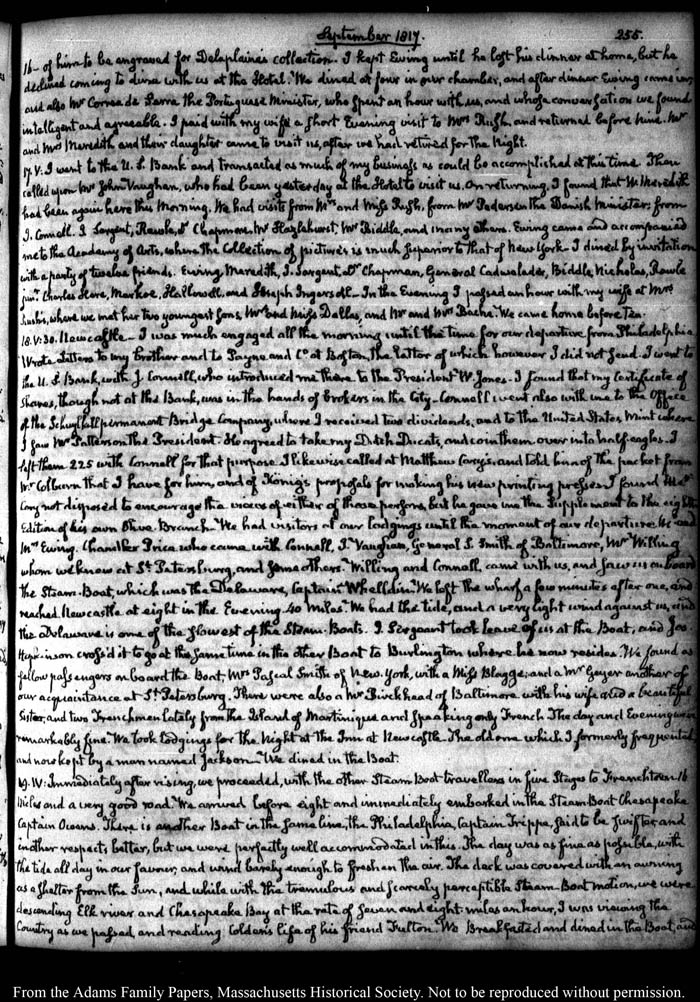 September 1817.
255.
16– of him to be engraved for Delaplaine's collection. I kept Ewing until he lost his dinner at home, but he
declined coming to dine with us at the Hotel. We dined at four in our chamber, and after dinner Ewing came in,
and also Mr Correa de Serra the Portuguese Minister, who spent an hour with us, and whose conversation we found
intelligent and agreeable. I paid with my wife a short Evening visit to Mrs Rush, and returned before nine. Mr
and Mrs Meredith and their daughter came to visit us, after we had retired for the Night.
17. V: I went to the U. S. Bank and transacted as much of my business as could be accomplished at this time. Then
called upon Mr John Vaughan, who had been yesterday at the Hotel to visit us. On returning, I found that Mr Meredith
had been again here this Morning. We had visits from Mrs and Miss Rush, from Mr Pedersen the Danish Minister; from
J. Connell. J. Sergeant, Rawle, Dr Chapman, Mr Hazlehurst, Mr Biddle, and many others. Ewing came and accompanied
me to the Academy of Arts, where the Collection of pictures is much superior to that of New York. I dined by invitation
with a party of twelve friends. Ewing, Meredith, J. Sergeant, Dr Chapman, General Cadwalader, Biddle, Nicholas, Rawle
junr. Charles Hare, Markoe, Hallowell, and Joseph Ingersoll– In the Evening I passed an hour with my wife at Mrs
Rush's, where we met her two youngest Sons, Mr and Miss Dallas, and Mr and Mrs Bache. We came home before Ten.
18. V:30. Newcastle– I was much engaged all the morning until the time for our departure from Philadelphia.
Wrote Letters to my brother and to Payne and Co at Boston, the latter of which however I did not send. I went to
the U. S. Bank, with J. Connell, who introduced me there to the President W. Jones– I found that my certificate of
Shares, though not at the Bank, was in the hands of brokers in the City– Connell went also with me to the Office
of the Schuylkill permanent Bridge Company, where I received two dividends, and to the United States, Mint where
I saw Mr Patterson the President. He agreed to take my Dutch Ducats, and coin them over into half eagles. I
left them 225 with Connell for that purpose. I likewise called at Matthew Carey's, and told him of the packet from
Mr Colburn that I have for him, and of König's proposals for making his new printing presses. I found Mr
Carey not disposed to encourage the views of either of those persons, but he gave me the Supplement to the eighth
Edition of his own Olive Branch– We had visitors at our lodgings until the moment of our departure. Mr and
Mrs Ewing. Chandler Price who came with Connell, J. Vaughan, General S. Smith of Baltimore, Mr Willing
whom we knew at St Petersburg, and some others. Willing and Connell, came with us, and saw us on board
the Steam-Boat, which was the Delaware, Captain Whelldin. We left the wharf a few minutes after one, and
reached Newcastle at eight in the Evening. 40 Miles. We had the tide, and a very light wind against us, and
the Delaware is one of the slowest of the Steam Boats. J. Sergeant took leave of us at the Boat, and Jos.
Hopkinson cross'd it to go at the same time in the other Boat to Burlington where he now resides. We found as
fellow passengers on board the Boat, Mrs Pascal Smith of New York, with a Miss Blagge; and a Mr Geyer another of
our acquaintance at St Petersburg. There were also a Mr Birckhead of Baltimore with his wife and a beautiful
Sister, and two Frenchmen lately from the Island of Martinique and speaking only French. The day and Evening was
remarkably fine. We took lodgings for the Night at the Inn at Newcastle. The old one which I formerly frequented
and now kept by a man named Jackson– We dined in the Boat.
19. IV: Immediately after rising, we proceeded, with the other Steam Boat travellers in five Stages to Frenchtown 16
Miles and a very good road. We arrived before eight and immediately embarked in the Steam Boat Chesapeake
Captain Owens. There is another Boat in the same line, the Philadelphia, Captain Trippe, said to be swifter and
in other respects better, but we were perfectly well accommodated in this. The day was as fine as possible, with
the tide all day in our favour, and wind barely enough to freshen the air. The deck was covered with an awning
as a shelter from the Sun, and while with the tremulous and scarcely perceptible Steam-Boat motion, we were
descending Elk river and Chesapeake Bay at the rate of seven and eight miles an hour, I was viewing the
Country as we passed, and reading Colden's life of his friend Fulton. We Breakfasted and dined in the Boat, and
From the Adams Family Papers, Massachusetts Historical Society. Not to be reproduced without permission.